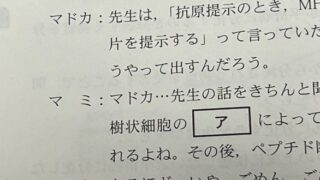 マドカ：先生は，「抗原提示のとき，MH
片を提示する」って言ってい
うやって出すんだろう。
マ　ミ：マドカ…先生の話をきちんと
樹状細胞の ア によって
れるよね。その後，ペプチド